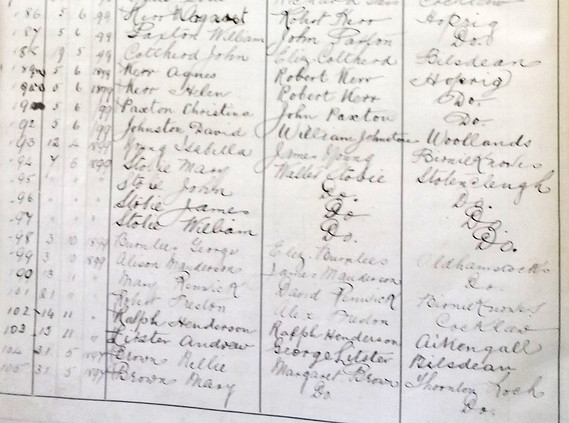 186 5 6 99 Kerr Margaret Robert Kerr Hoprig
187 5 6 99 Paxton William John Paxton Do.
188 19 5 99 Cottherd John Eliz Cottherd Bilsdean
189 5 6 1899 Kerr Agnes Robert Kerr Hoprig
5 6 1899 Kerr Helen Robert Kerr Do.
5 6 99 Paxton Christina John Paxton Do.
192 5 6 99 Johnston David William Johnstone Woollands
193 12 4 1899 Young Isabella James Young Birnieknowes
94 7 6 1899 Stobie Mary Walter Stobie
95 " " " Stobie John Do. Do.
96 " " " Stobie James Do Do.
97 " " " Stobie William Do. Do.
98 3 10 1899 Burnlees George Eliz Burnlees Oldhamstocks
99 3 10 1899 Alison Manderson James Manderson Do.
100 13 11 " Mary Renwick David Renwick Birnieknowes
101 21 " " Robert Preston Alex Preston Cocklaw
102 14 11 " Ralph Henderson Ralph Henderson Aikengall
103 13 11 " Lister Andrew George Lister Bilsdean
104 31 5 1897 Brown Nellie Margaret Brown Thornton Loch
105 31 5 1897 Brown Mary Do. Do.